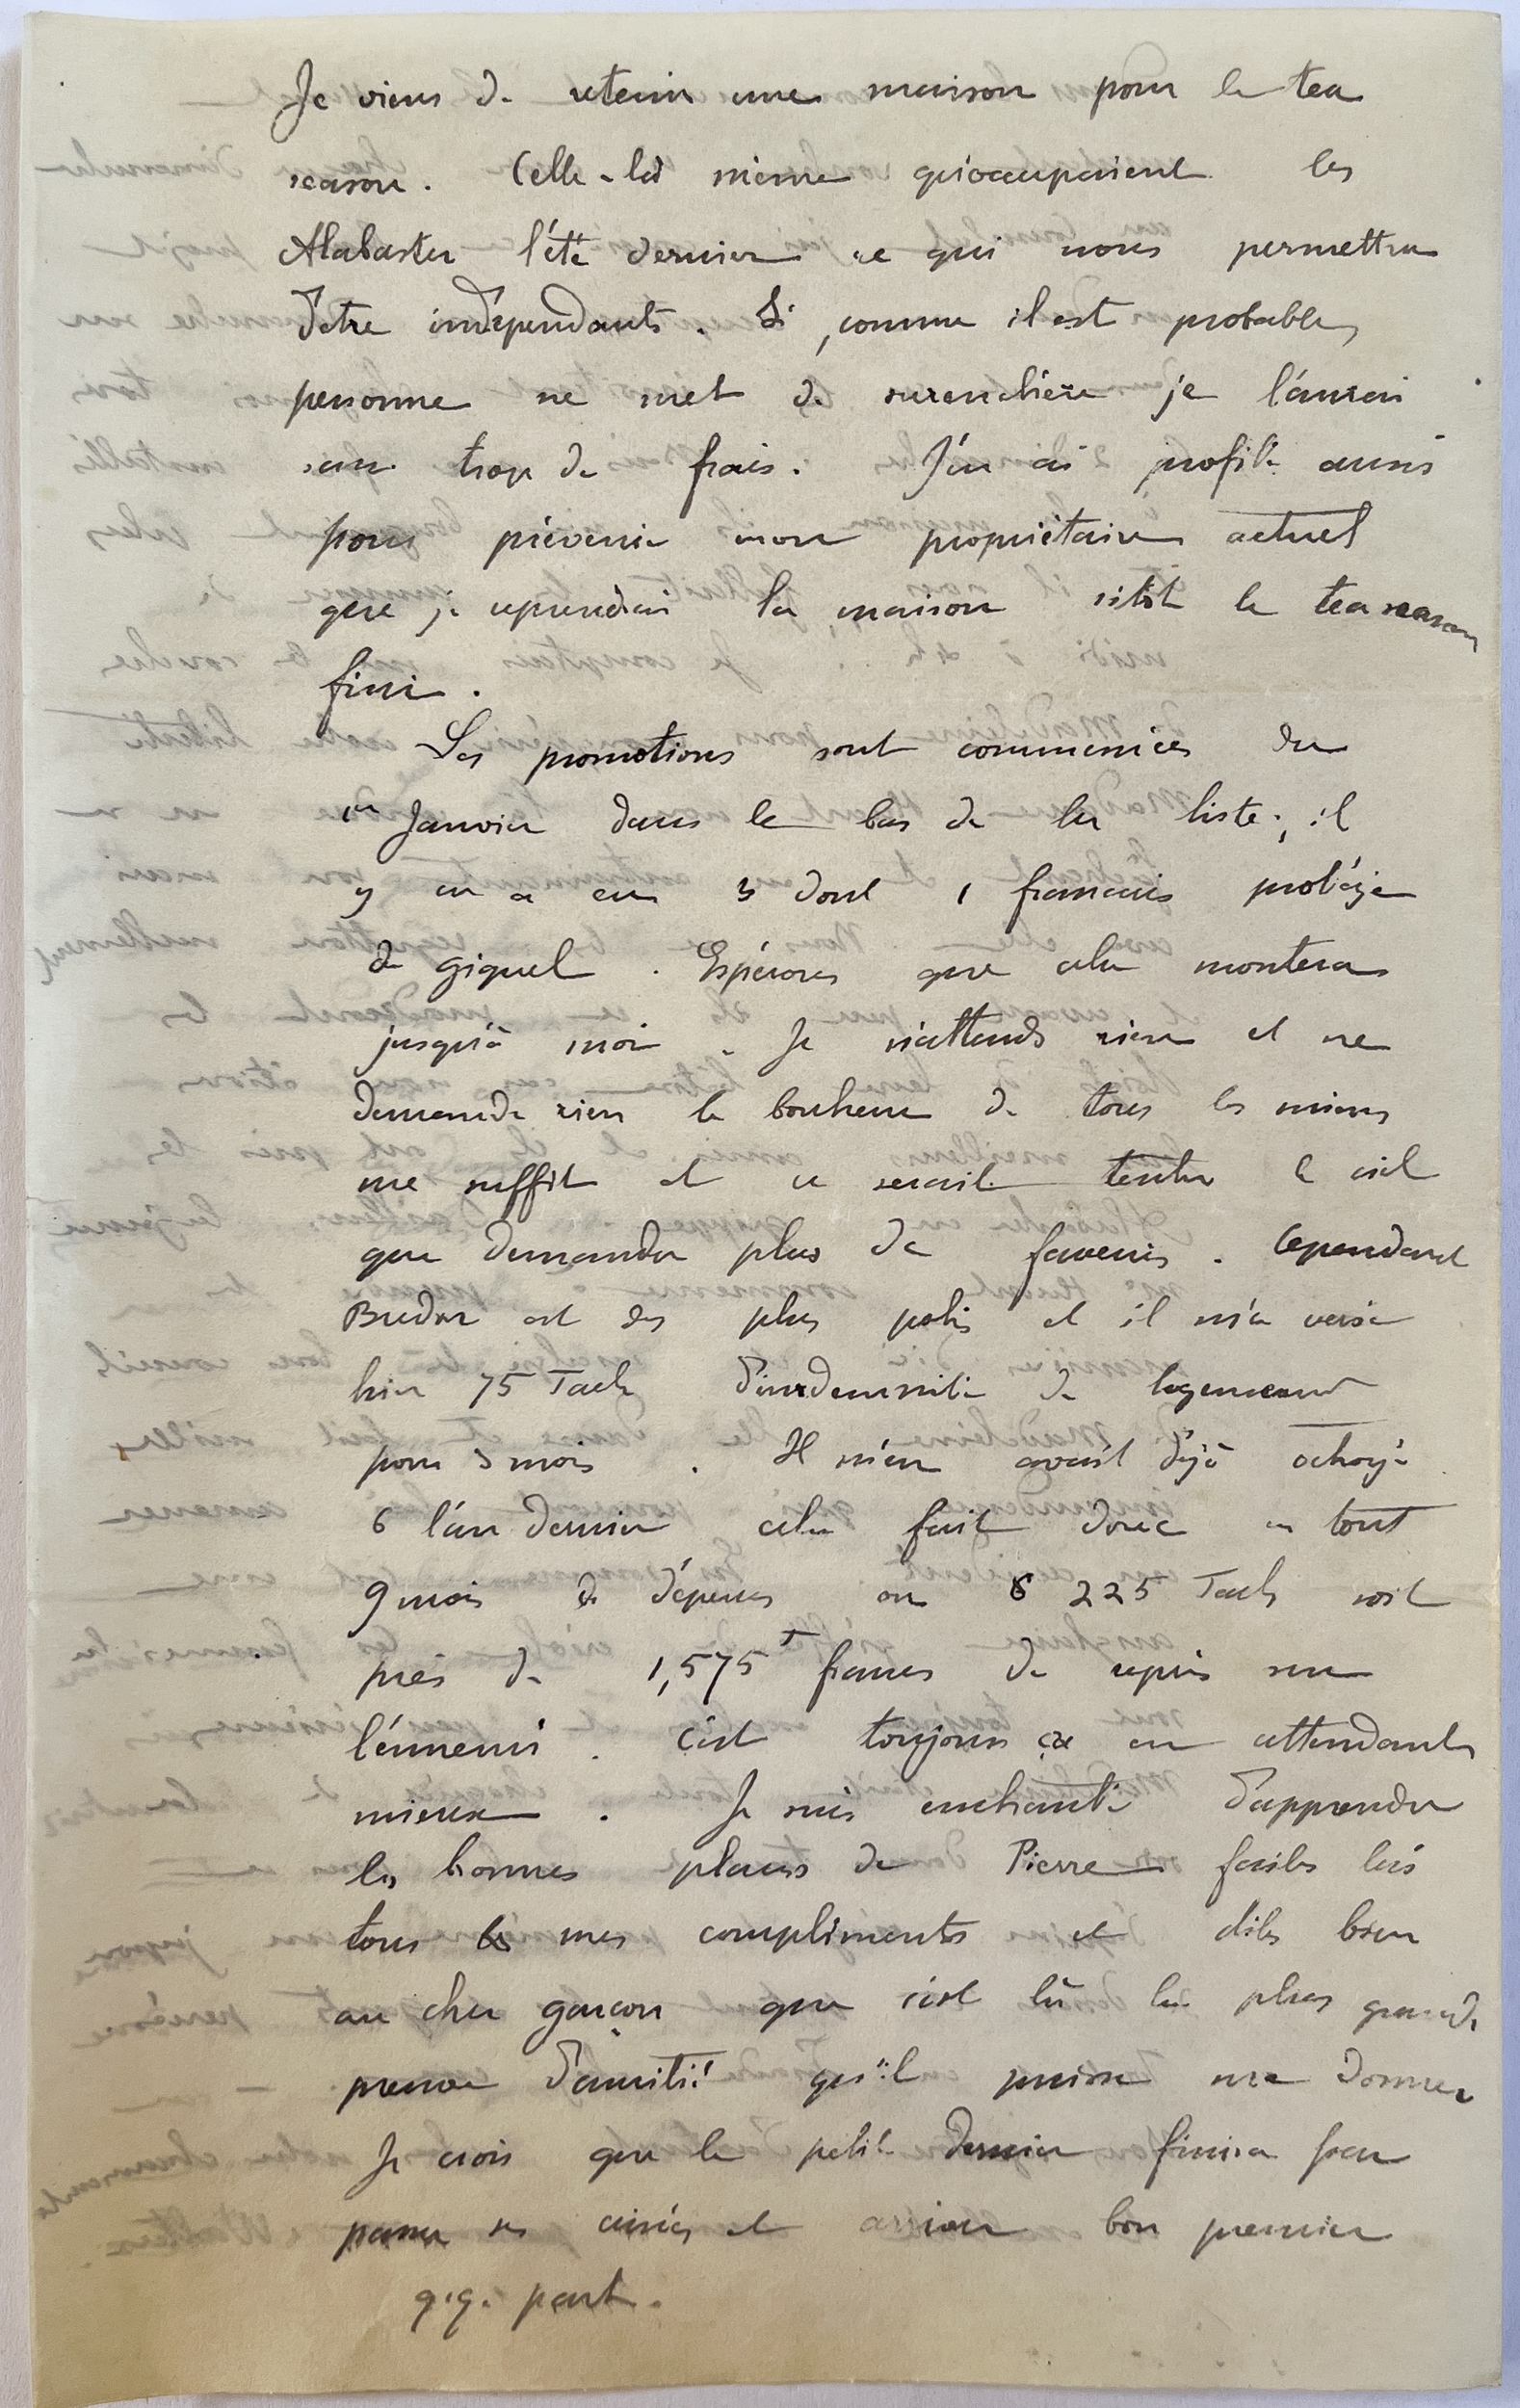 Je viens de retenir une maison pour la tea
season. Celle-là même qu'occupaient les
Alabaster l'été dernier ce qui nous permettra
d'être indépendants. Si, comme il est probable,
personne ne met de surenchère je l'aurai
sans trop de frais. J'en ai profité aussi
pour prévenir mon propriétaire actuel
que je reprendrai la maison sitôt la tea season
fini.
Les promotions sont commencées du
1er Janvier dans le bas de la liste; il
y en a eu 3 dont 1 français protégé
de Giquel. Espérons que cela montera
jusqu'à moi. Je n'attends rien et ne
demande rien le bonheur de tous les miens
me suffit et ce serait tenter le ciel
que demander plus de faveurs. Cependant
Bredon est des plus polis et il m'a versé
hier 75 Taels d'indemnité de logement
pour 3 mois. Il m'en avait déjà octroyé
6 l'an dernier cela fait donc en tout
9 mois de dépenses ou 225 Taels soit
près de 1,575 francs de repris sur
l'ennemi. C'est toujours ça en attendant
mieux. Je suis enchanté d'apprendre
les bonnes places de Pierre faites lui
tous mes compliments et dites bien
au cher garçon que c'est là la plus grande
preuve d'amitié qu'il puisse me donner
Je crois que le petit dernier finira par
passer ses aînés et arriver bon premier
q.q. part.